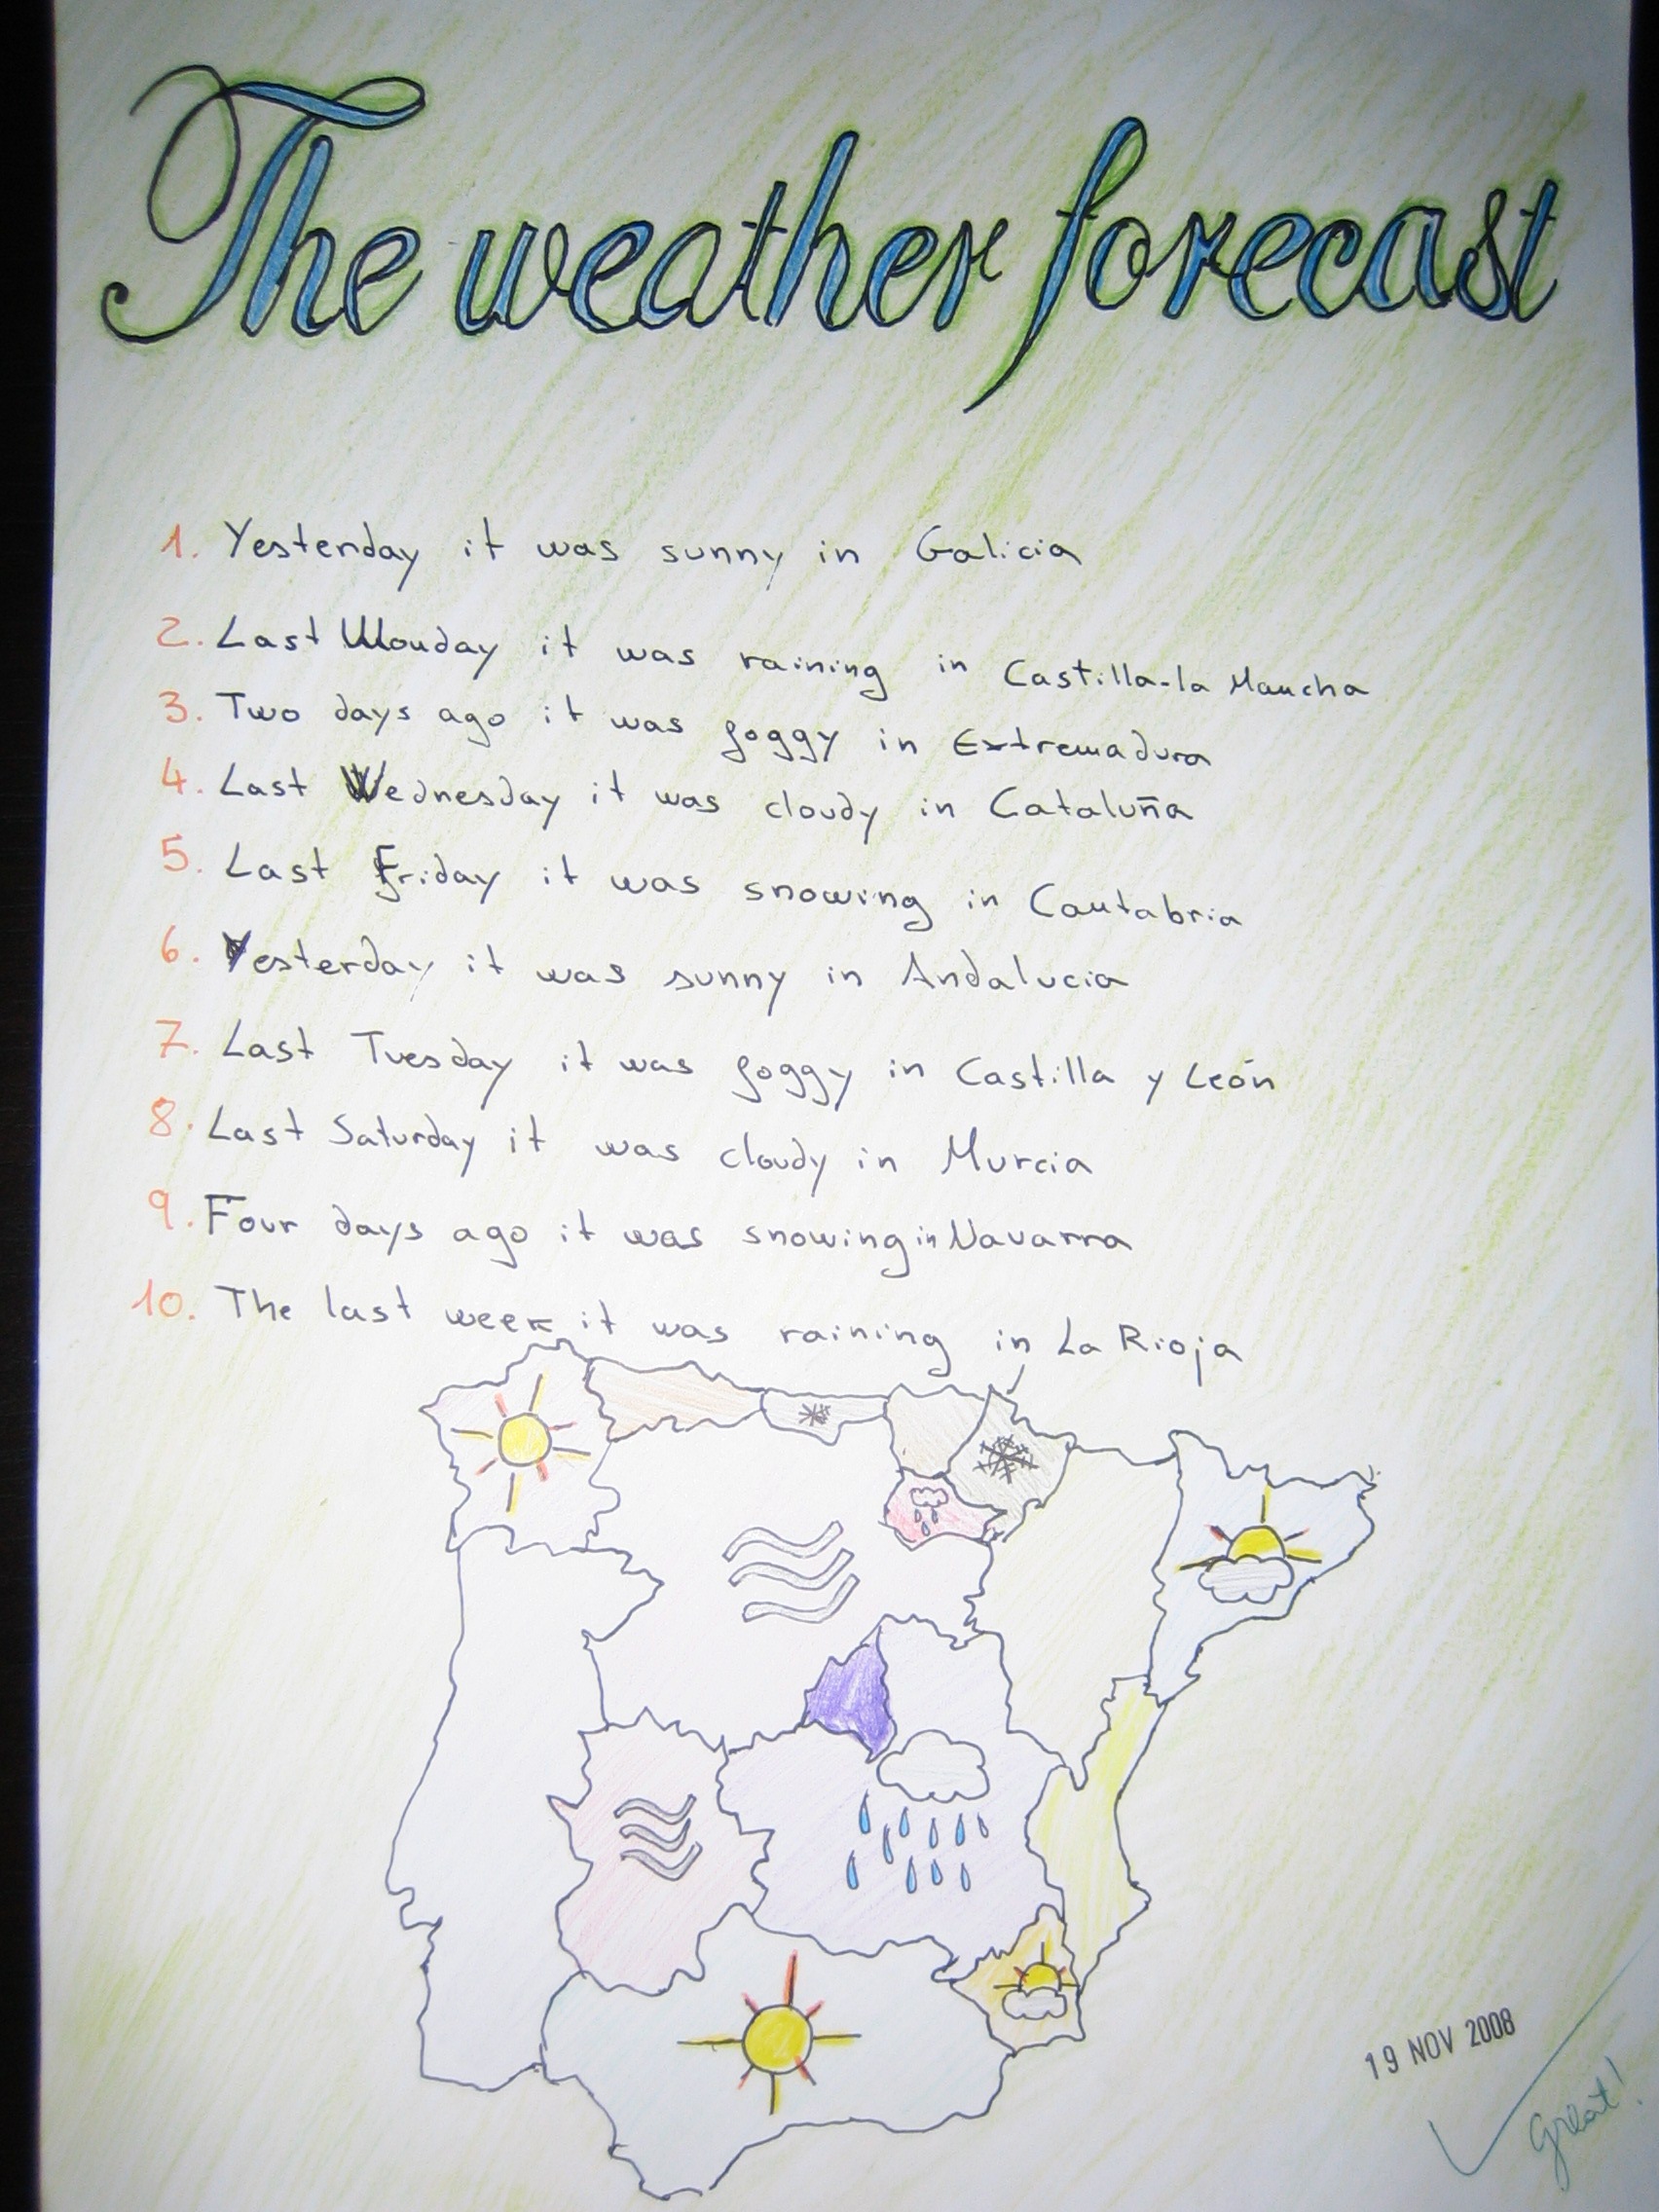 The weather forecast
1. Yesterday it was sunny in Galicia
2. Last Monday it was raining in Castilla-la Mancha
3. Two days ago it was foggy in Extremadura
4. Last Wednesday it was cloudy in Cataluña
5. Last Friday it was snowing in Cantabria
6. Yesterday it was sunny in Andalucia
7. Last Tuesday it was foggy in Castilla y León
8. Last Saturday it was cloudy in Murcia
9. Four days ago it was snowing in Navarra
10. The last week it was raining in La Rioja
19 NOV 2008
Great!